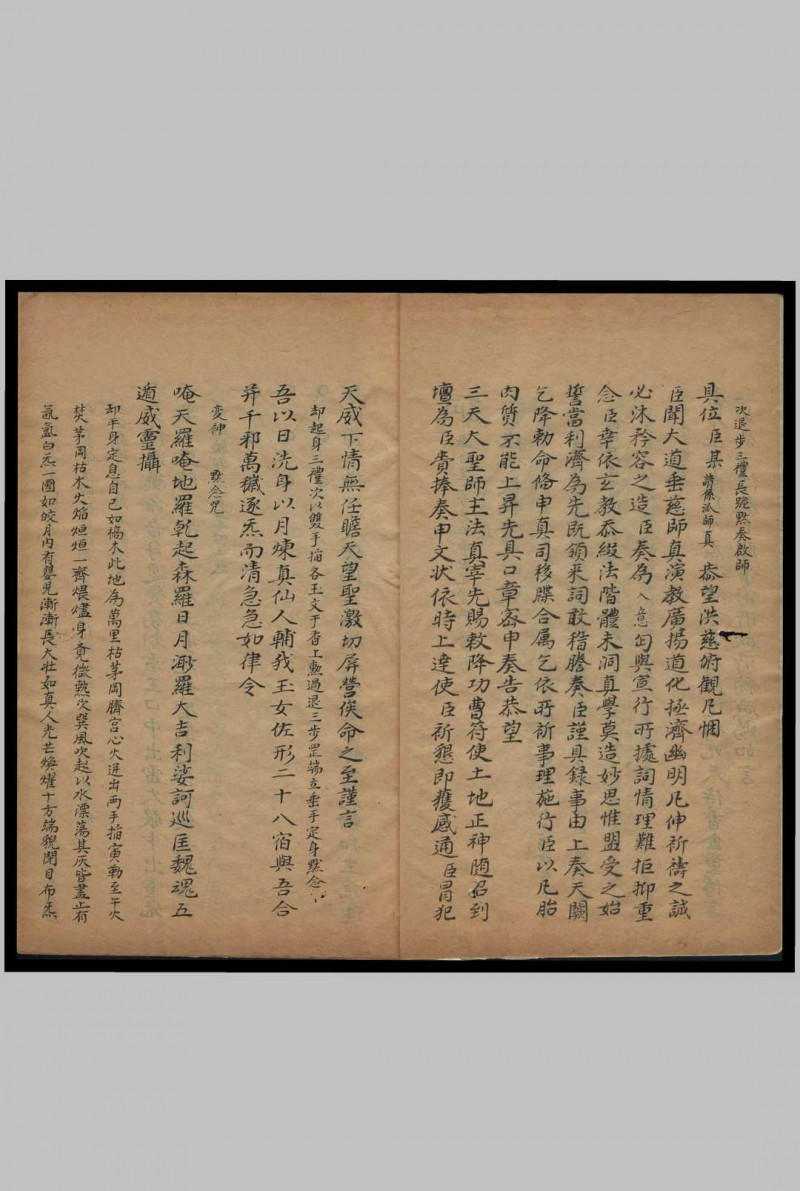 次退步三禮長跪黙奏啟師
具位臣某請依派師真恭望洪慈俯觀凡悃
臣聞大道垂慈師真演教廣揚道化拯濟幽明凡伸祈禱之誠
必沐矜容之造臣奏為入意匄與宣行所據詞情理難拒抑重
念臣幸依玄教忝綴法階體未洞真學莫造妙思惟盟受之始
誓當利濟為先既領來詞敢稽謄奏臣謹具録事由上奏天闕
乞降勅命俻申真司移牒合属乞依所祈事理施行臣以凡胎
肉質不能上昇先具口章密申奏告恭望
三天大聖師主法真宰先賜敕降功曹符使土地正神随召到
壇為臣賫捧奏申文状依時上達使臣祈懇即獲感通臣冒犯
天威下情無任瞻天望聖激切屏營俟命之至謹言
却起身三禮次以雙手掐各玉文于香上勲過退三步罡端立垂手定身黙念
吾以日洗身以月煉真仙人輔我玉女佐形二十八宿與吾合
并千邪萬穢逐炁而清急急如律令
変神　黙念咒
唵天羅唵地羅乾起森羅日月羅大吉利娑訶巡匡魏魂五
遁威靈攝
却平身定息自己如槁木此地為萬里枯茅岡臍宫心火迸出兩手掐寅勒至午火
焚茅岡枯木火焰烜烜一齊煨燼身竟微熱次巽風吹起以水漂蕩其灰皆盡止有
氤氲白炁一團如皎月内有嬰児漸漸長大壮如真人光芒煥耀十方端貌閉目布炁